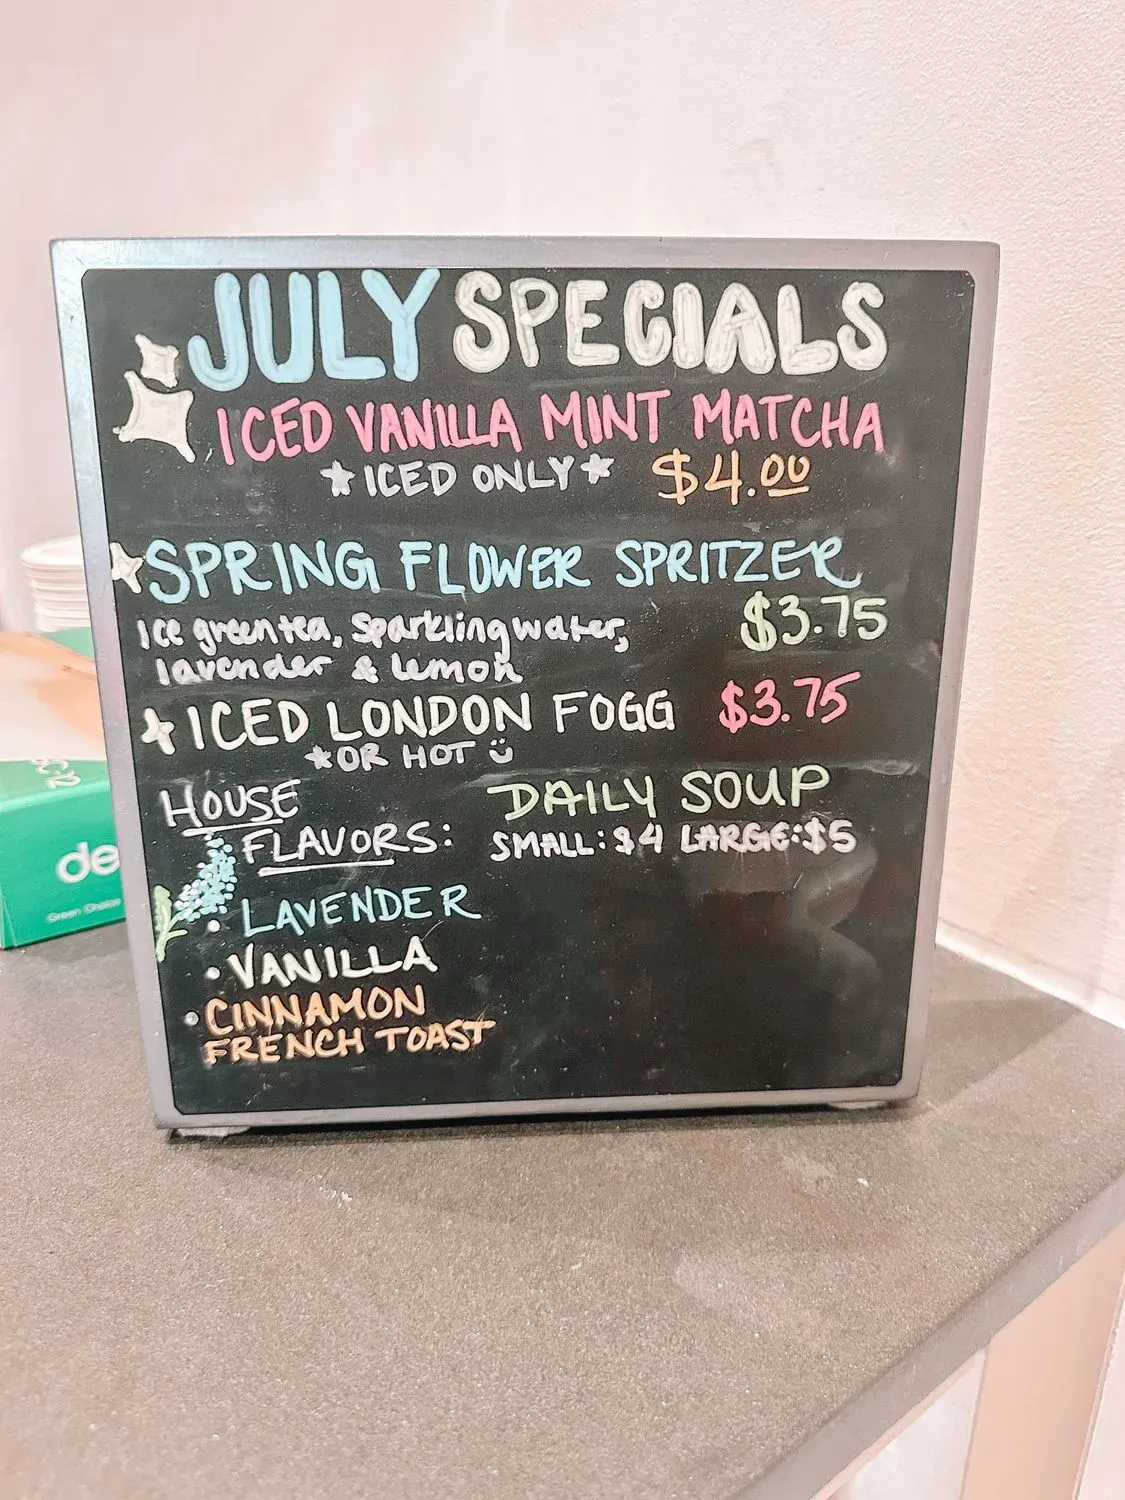 JULY SPECIALS
ICED VANILLA MINT MATCHA
*ICED ONLY* $4.00
SPRING FLOWER SPRITZER
Ice green tea, sparkling water,
$3.75
lavender & lemon
ICED LONDON FOGG $3.75
*OR HOT
HOUSE
FLAVORS:
• LAVENDER
• VANILLA
• CINNAMON
FRENCH TOAST
DAILY SOUP
SMALL: $4 LARGE: $5
de
Green Choice